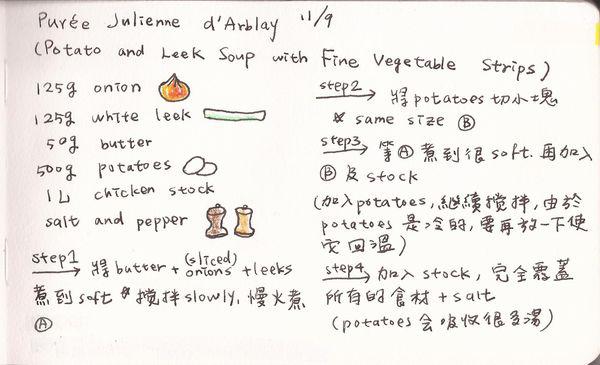 Purée Julienne d'Arblay 11/9
(Potato and Leek Soup with Fine Vegetable Strips)
125g onion
125g white leek
50g butter
500g potatoes
1L chicken stock
salt and pepper
step1 → 將butter + (sliced) onions + leeks
煮到soft * 攪拌slowly, 慢火煮
Ⓐ
step2 → 將potatoes切小塊
* same size Ⓑ
step3 → 等Ⓐ煮到很soft. 再加入
Ⓑ及stock
(加入potatoes, 繼續攪拌, 由於
potatoes是冷的, 要再放一下使
它回溫)
step4 → 加入stock, 完全覆蓋
所有的食材 + salt
(potatoes会吸收很多湯)